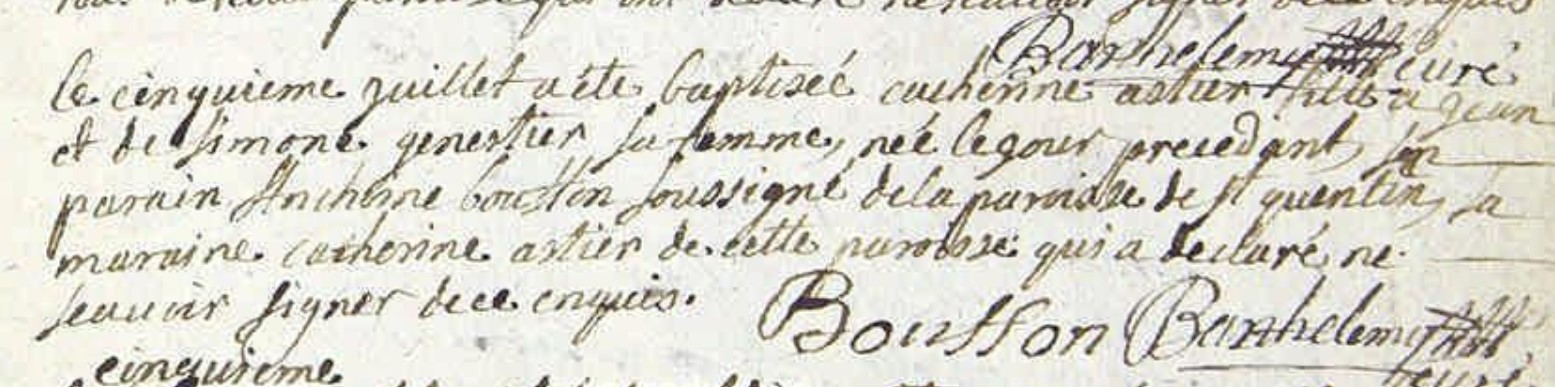 signer
Barthelemy curé
le cinquieme juillet a été baptiseé catherine astier fille a jean
et de simone genestier sa femme, neé le jour precedant, son
parain Anthoine bouffon soussigné de la paroisse de st quentin, sa
maraine catherine astier de cette paroisse qui a declaré ne
scauoir signer de ce enquis.
Bouffon Barthelemy
cinquieme